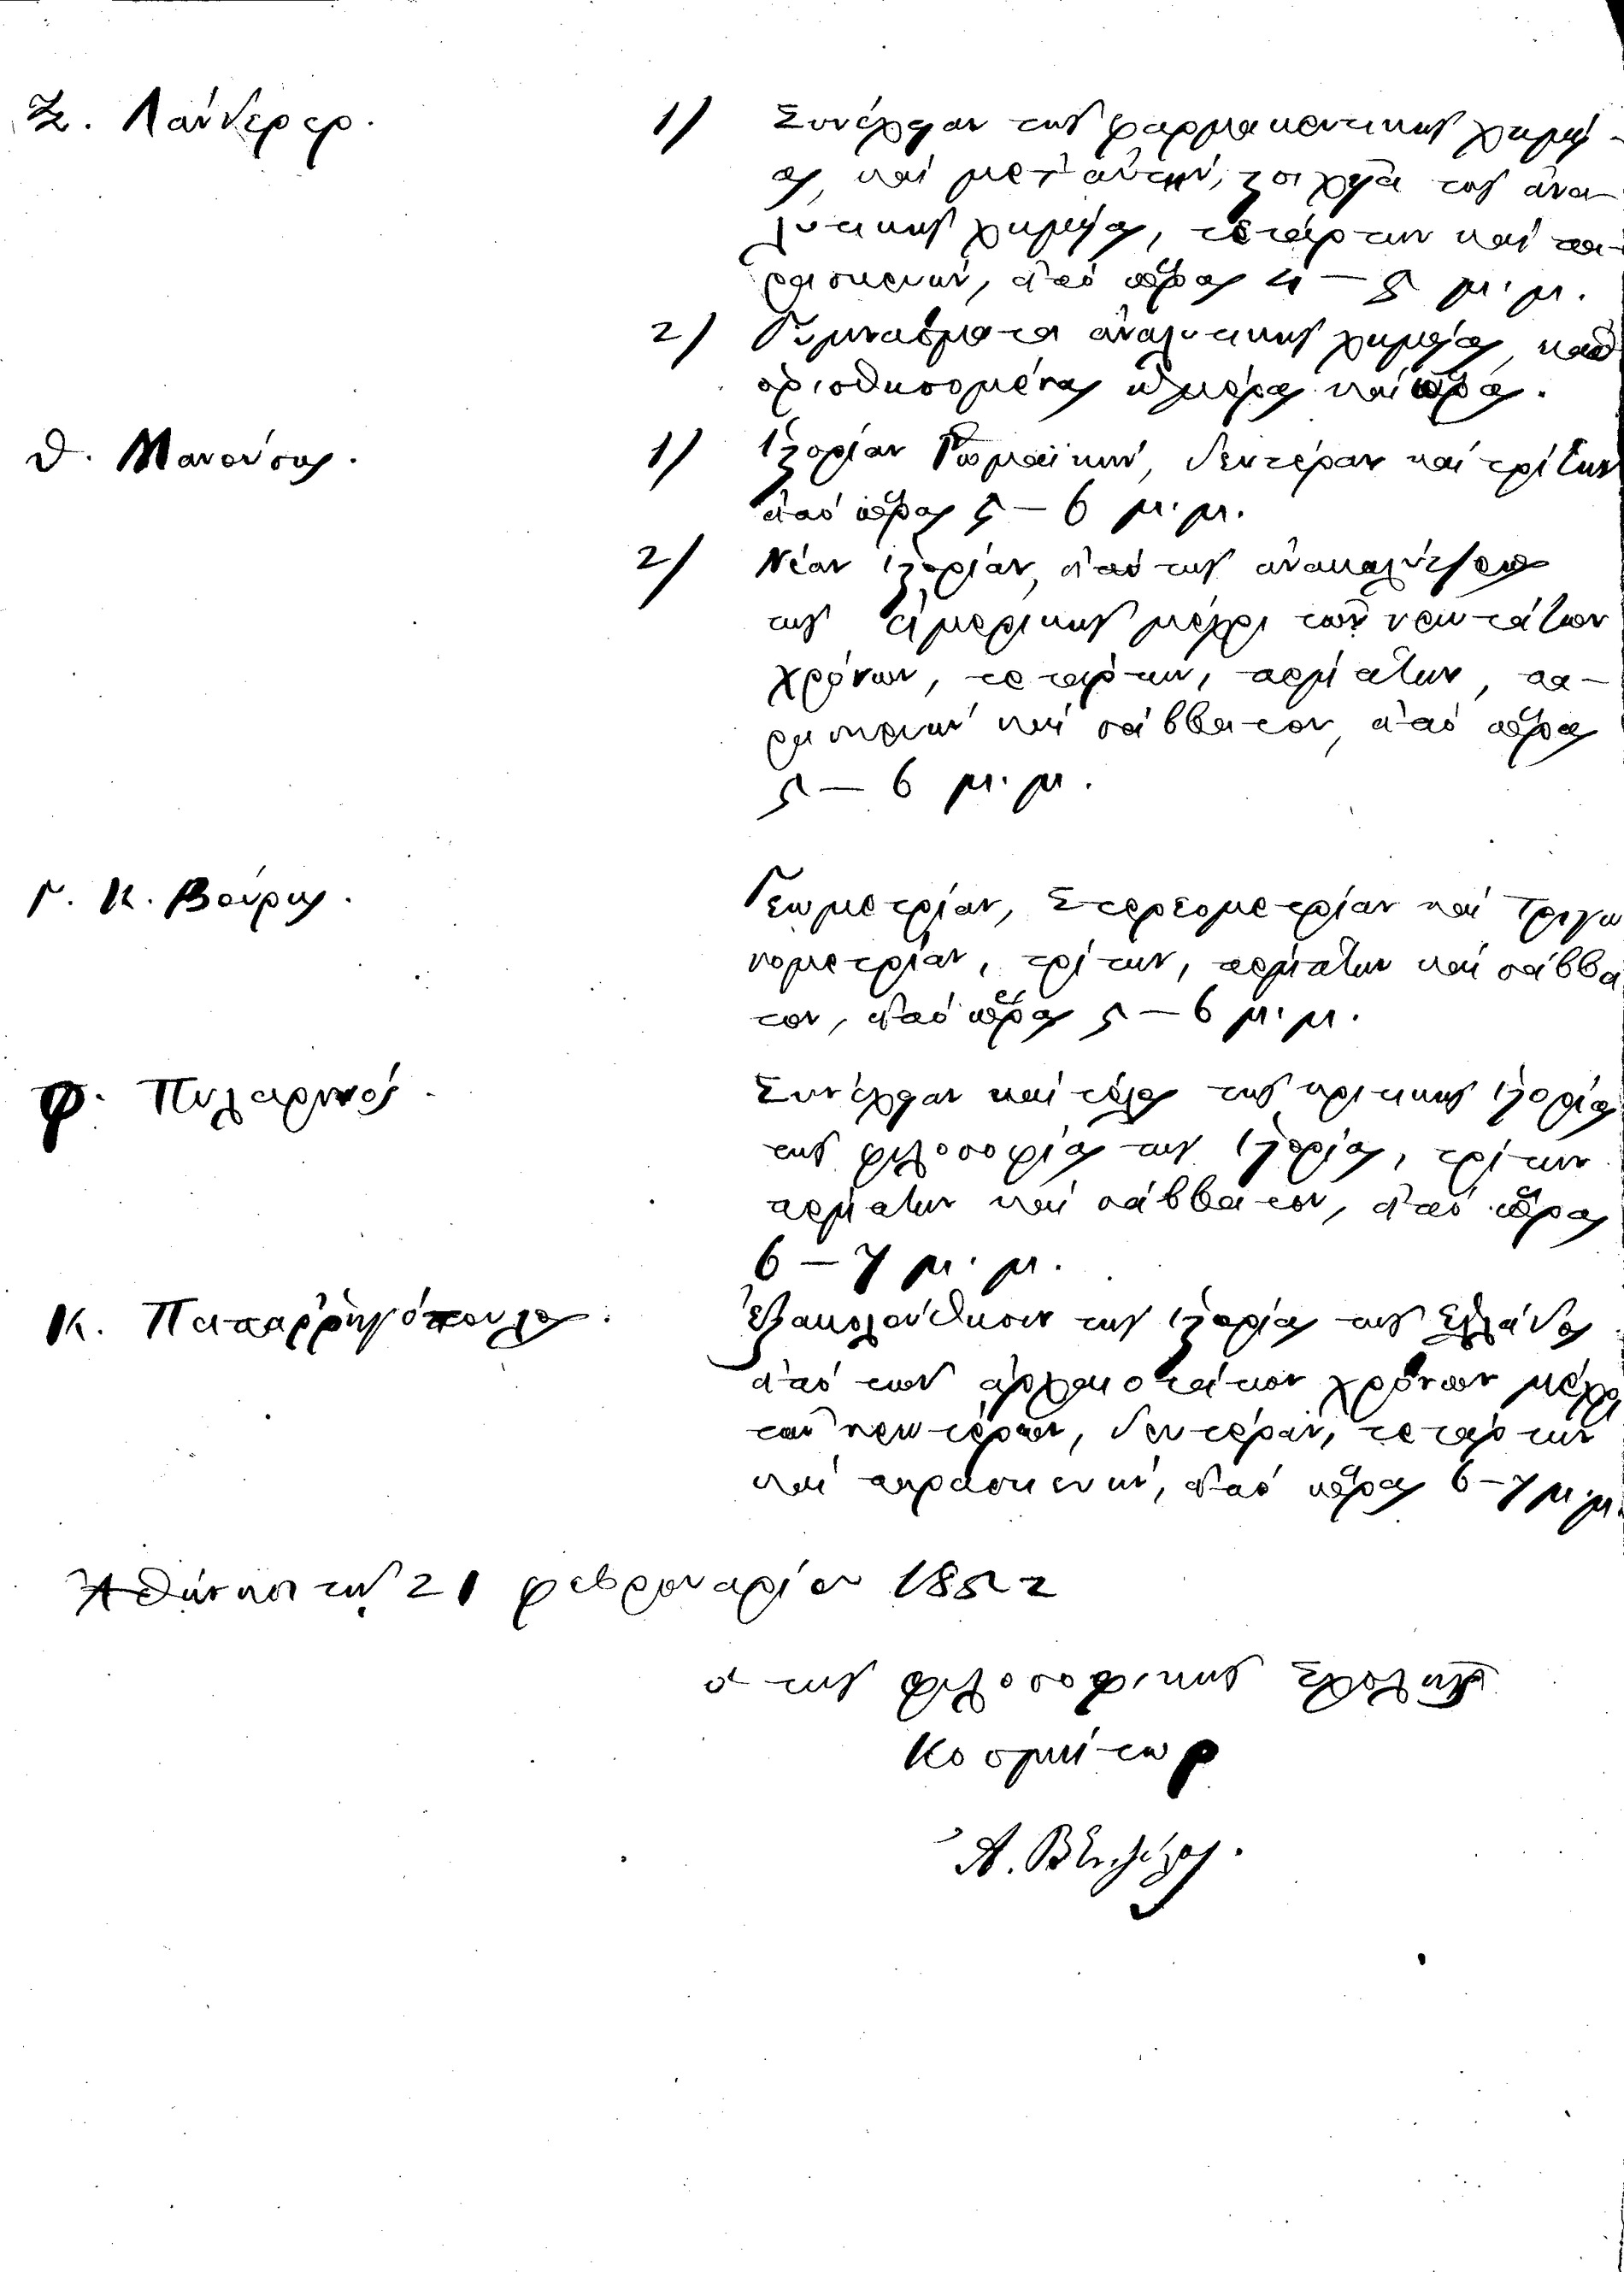 Ξ. Λάνδερερ. 1) Συνέχειαν της φαρμακευτικής χημεί-
ας, και μετ' αυτήν, στοιχεία της ανα-
λυτικής χημείας, τετάρτην και πα-
ρασκευήν, από ώρας 4 — 5 μ. μ.
2) Γυμνάσματα αναλυτικής χημείας, καθ'
ορισθησομένας ημέρας και ώρας.
Θ. Μανούσης. 1) Ιστορίαν Ρωμαϊκήν, δευτέραν και τρίτην
από ώρας 5 — 6 μ. μ.
2) Νέαν ιστορίαν, από της ανακαλύψεως
της Αμερικής μέχρι των νεωτάτων
χρόνων, τετάρτην, πέμπτην, πα-
ρασκευήν και σάββατον, από ώρας
5 — 6 μ. μ.
Γ. Κ. Βούρης. Γεωμετρίαν, Στερεομετρίαν και Τριγω
νομετρίαν, τρίτην, πέμπτην και σάββα
τον, από ώρας 5 — 6 μ. μ.
Φ. Πυλαρινός. Συνέχειαν και τέλος της κριτικής ιστορίας
της φιλοσοφίας της ιστορίας, τρίτην
πέμπτην και σάββατον, από ώρας
6 — 7 μ. μ.
Κ. Παπαρρηγόπουλος. Εξακολούθησιν της ιστορίας της Ελλάδος
από των αρχαιοτάτων χρόνων μέχρι
των νεωτέρων, δευτέραν, τετάρτην
και παρασκευήν, από ώρας 6 — 7 μ. μ.
Αθήνησι τη 21 φεβρουαρίου 1852
ο της Φιλοσοφικής Σχολής
Κοσμήτωρ
Α. Βενιζέλος.